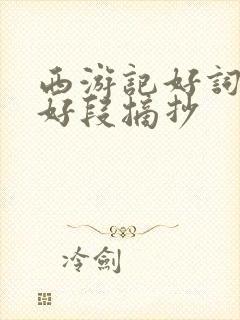 西游記好詞
好段摘抄
冷劍